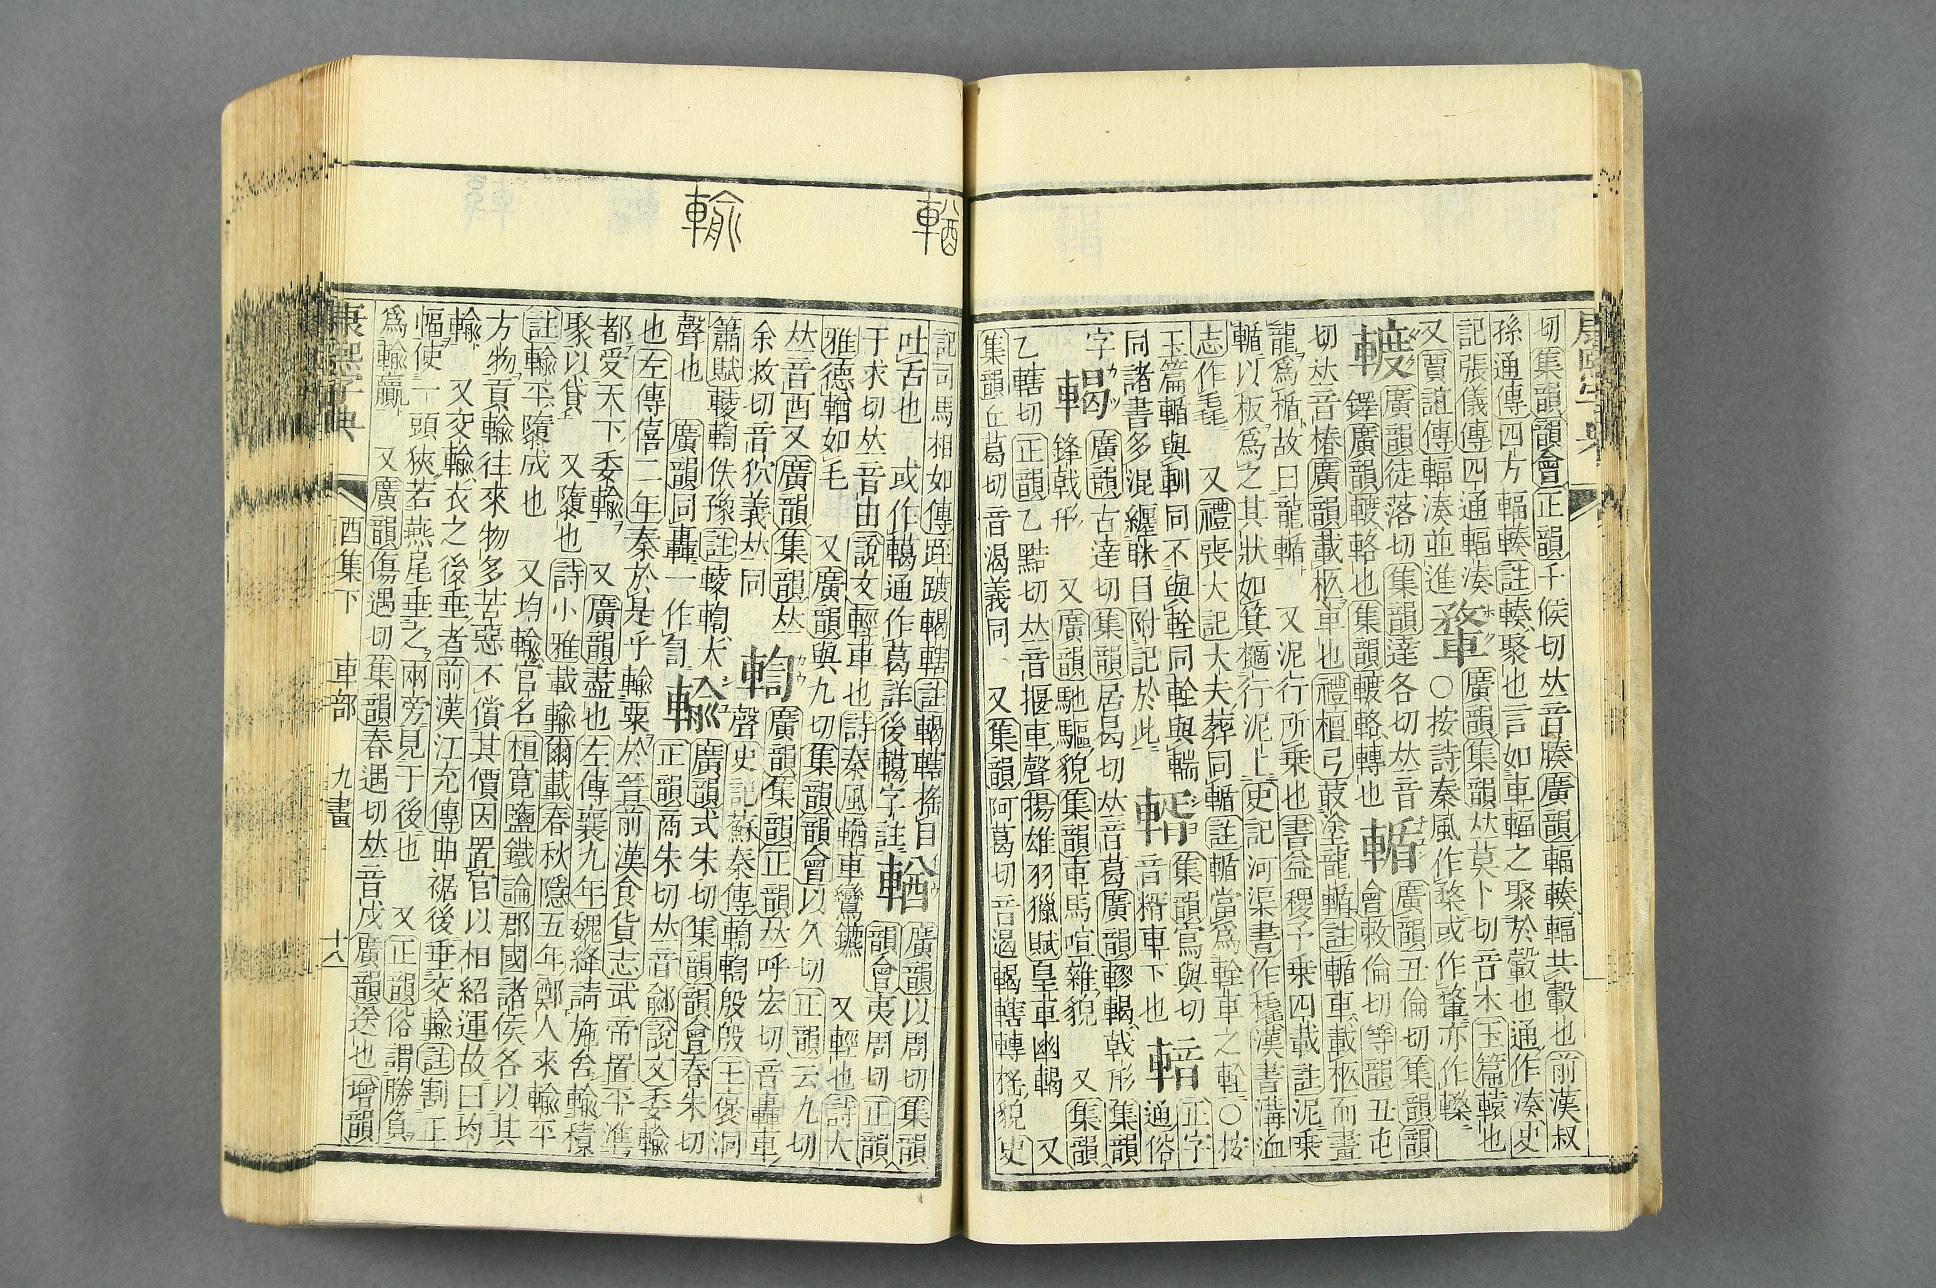 切集韻韻會正韻千候切𠀤音腠廣韻輻輳輻共轂也前漢叔
孫通傳四方輻輳註輳聚也言如車輻之聚於轂也通作湊史
記張儀傳四通輻湊
又賈誼傳輻湊並進
鞪
廣韻集韻𠀤莫卜切音木玉篇轅也
○按詩秦風作楘或作鞪亦作
𨍏
廣韻徒落切集韻達各切𠀤音
鐸廣韻𨍏輅也集韻𨍏輅轉也
輴
廣韻丑倫切集韻韻
會敕倫切等韻丑屯
切𠀤音椿廣韻載柩車也禮檀弓菆塗龍輴註輴車載柩而畫
龍爲楯故曰龍輴 又泥行所乗也書益稷予乗四載註泥乗
輴以板爲之其狀如箕擿行泥上史記河渠書作橇漢書溝洫
志作毳 又禮喪大記大夫葬同輴註輴當爲輇車之輇○按
玉篇輴與䡅同不與輇同輇與輲
同諸書多混纒眯目附記於此
集韻寫與切
音糈車下也
𨌺
正字
通俗
字
輵
廣韻古達切集韻居曷切𠀤音葛廣韻轇輵戟形集韻
鋒戟形 又廣韻馳驅貌集韻車馬喧雜貌 又集韻
乙轄切正韻乙黠切𠀤音揠車聲揚雄羽獵賦皇車幽輵 又
集韻丘葛切音渴義同 又集韻阿葛切音遏輵轄轉搖貌史
輶
輸
記司馬相如傳跮踱輵轄註輵轄搖目
吐舌也 或作轕通作葛詳後轕字註
輶
廣韻以周切集韻
韻會夷周切正韻
于求切𠀤音由說文輕車也詩秦風輶車鸞鑣 又輕也詩大
雅德輶如毛 又廣韻與九切集韻韻會以久切正韻云九切
𠀤音酉又廣韻集韻𠀤
余救切音狖義𠀤同
輷
廣韻集韻正韻𠀤呼宏切音轟車
聲史記蘇秦傳輷輷殷殷王褒洞
簫賦䡖輷佚豫註䡖輷大
聲也 廣韻同轟一作訇
輸
廣韻式朱切集韻韻會春朱切
正韻商朱切𠀤音鄃說文委輸
也左傳僖二年秦於是乎輸粟於晉前漢食貨志武帝置平準
都受天下委輸 又廣韻盡也左傳襄九年魏絳請施舍輸積
聚以貸 又隳也詩小雅載輸爾載春秋隱五年鄭人來輸平
註輸平隳成也 又均輸官名桓寬鹽鐵論郡國諸侯各以其
方物貢輸往來物多苦惡不償其價因置官以相紹運故曰均
輸 又交輸衣之後垂者前漢江充傳曲裾後垂交輸註割正
幅使一頭狹若燕尾垂之兩旁見于後也 又正韻俗謂勝負
爲輸贏 又廣韻傷遇切集韻春遇切𠀤音戍廣韻送也增韻
康熙字典 酉集下 車部 九畫 十八